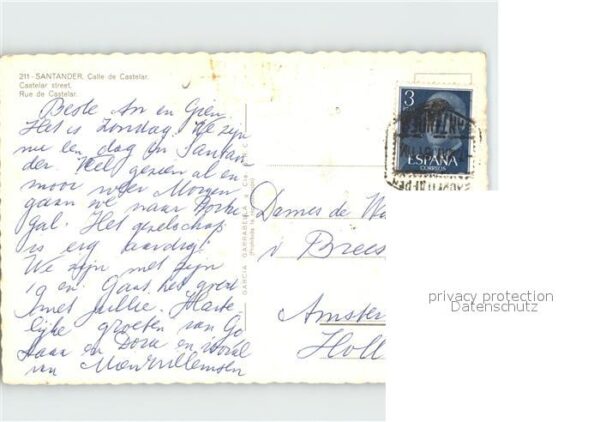 211 - SANTANDER. Calle de Castelar.
Castelar street.
Rue de Castelar.
Beste An en Gien
Het is Zondag. We zijn
nu een dag en Santan
der. Veel gezien al en
mooi weer Morgen
gaan we naar Portu
gal. Het gezelschap
is erg aardig!
We zijn met zijn
19 en. Gaat het goed
met jullie. Harte
lijke groeten van
en Dora en vooral
van
GARCIA GARRABELLA Y Cia.
3
ESPAÑA
CORREOS
Dames de
Brees
Amster
Holl
privacy protection
Datenschutz